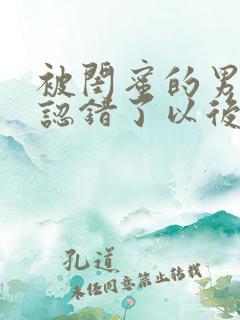 被閨蜜的男
認錯了以後
孔道
未任同意禁止轉載